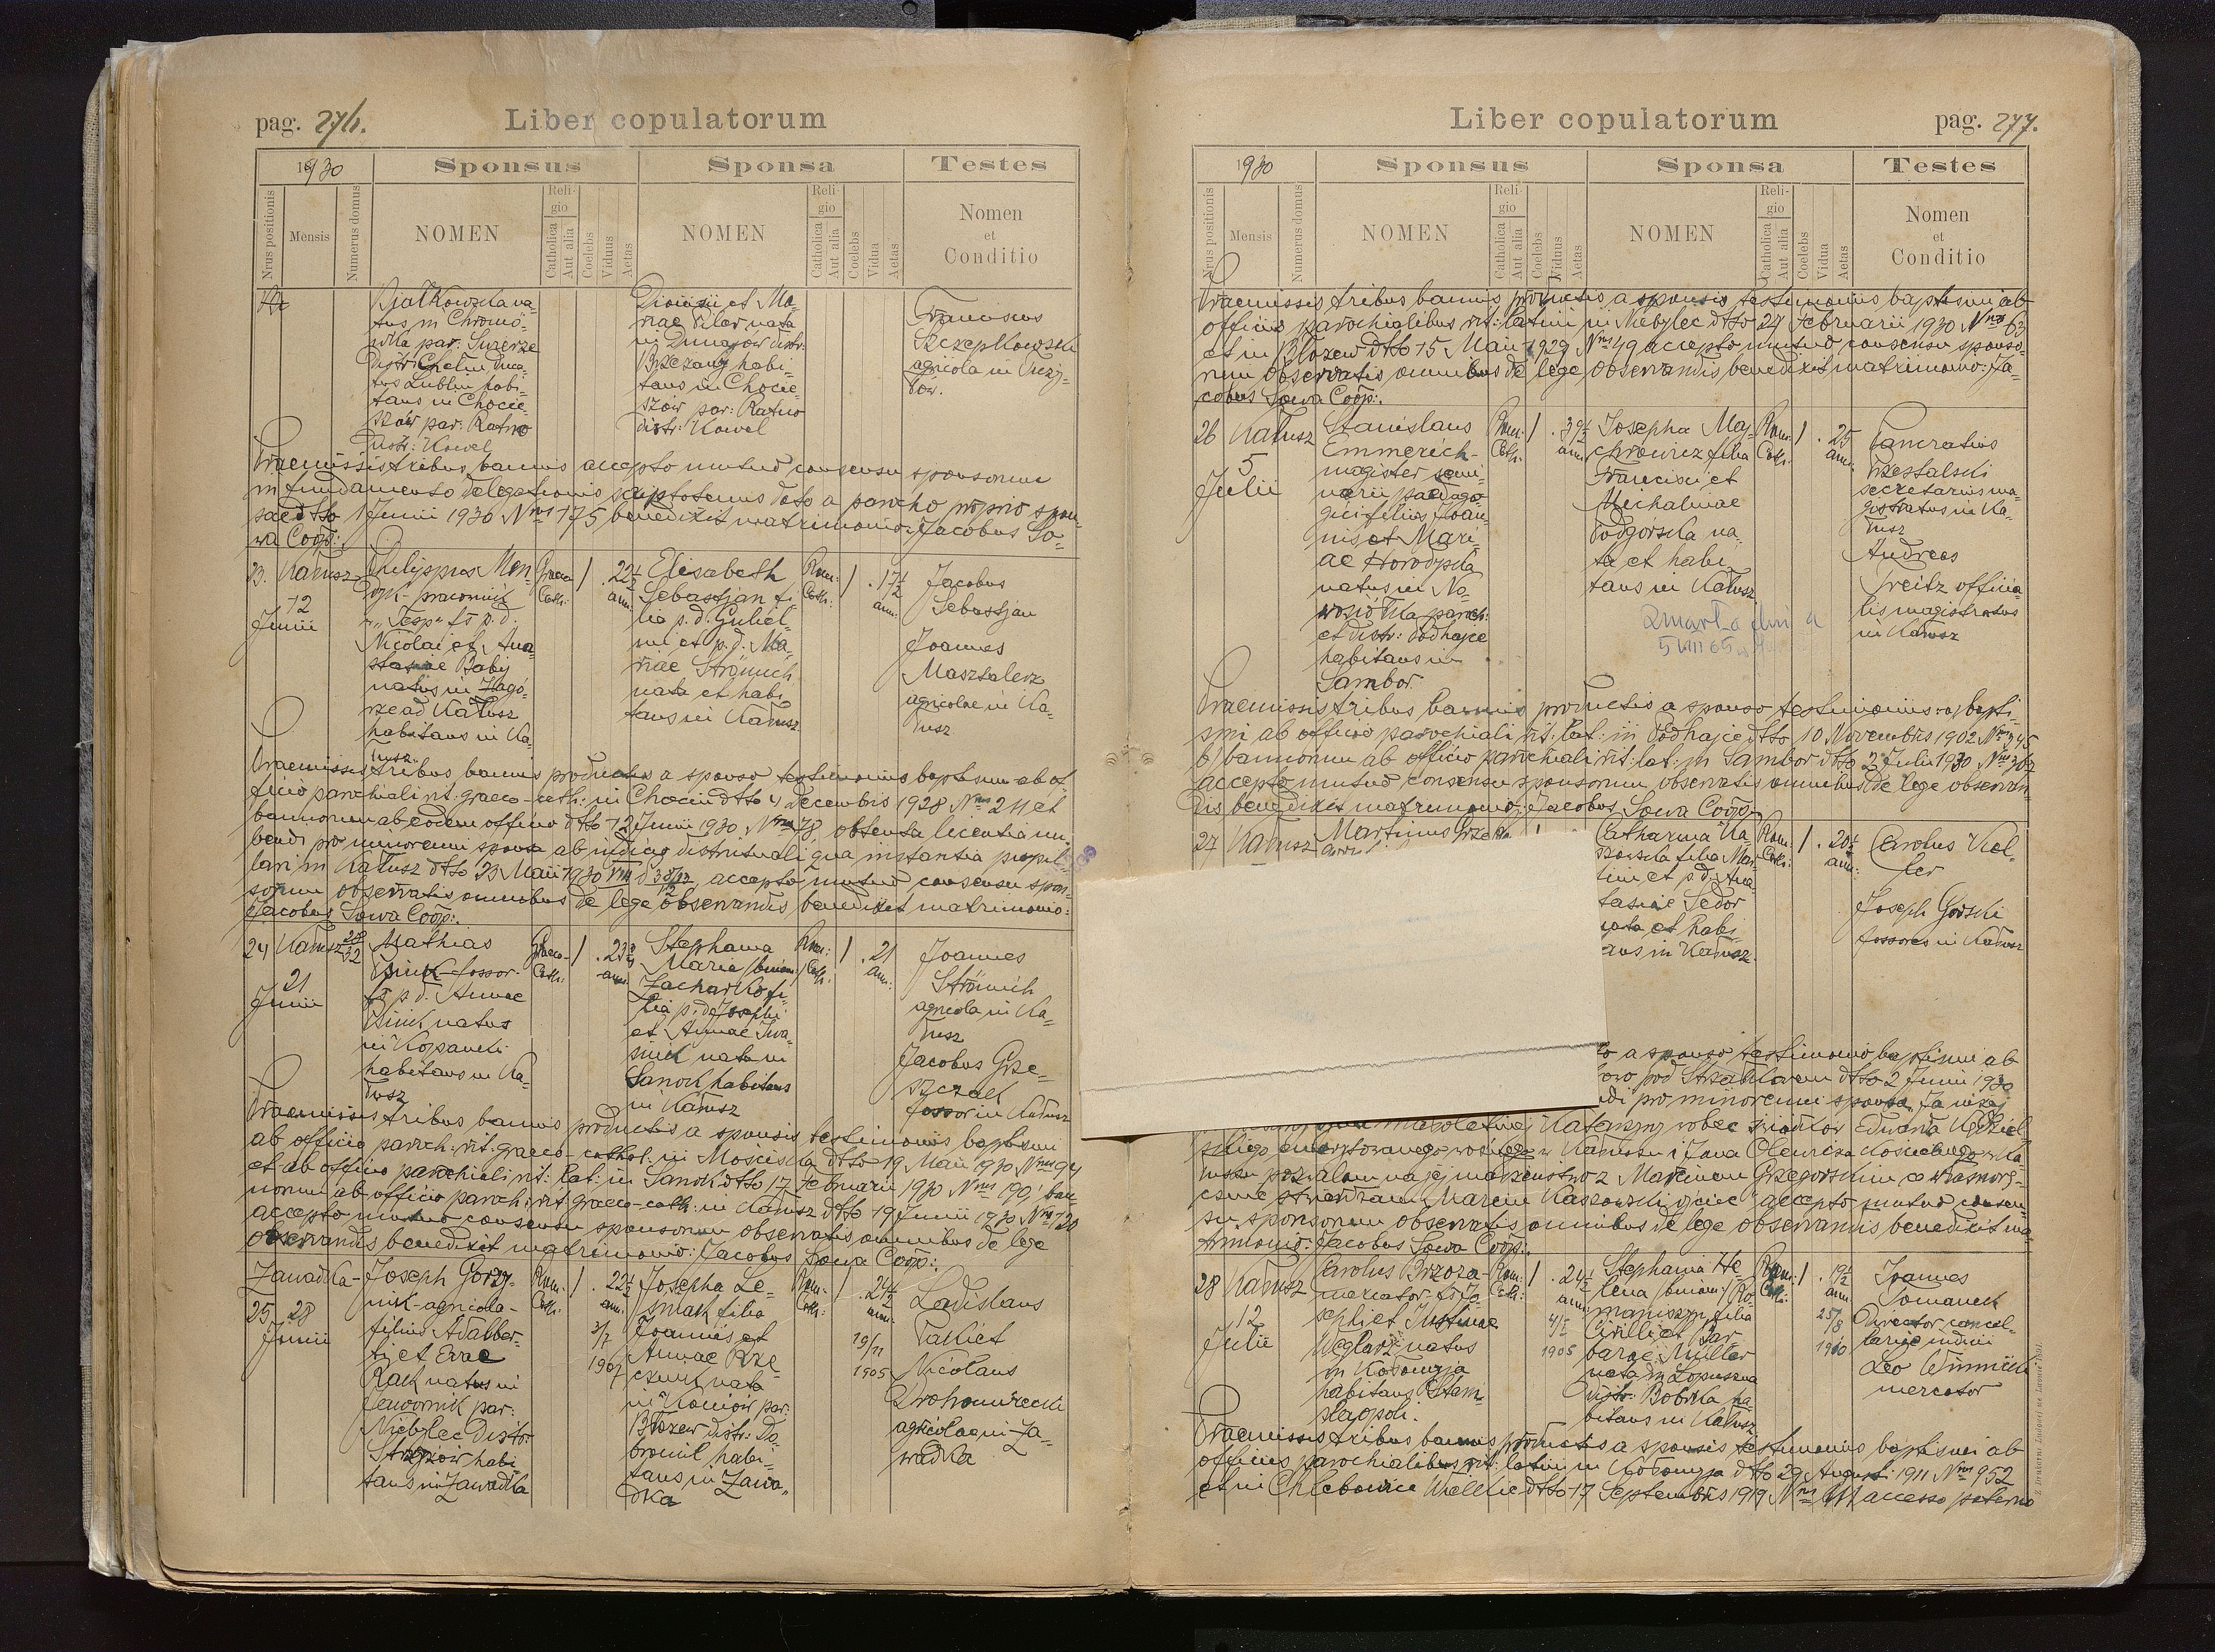 pag. 276.
Liber copulatorum
1930
Sponsus
Sponsa
Testes
Nrus positionis
Mensis
Numerus domus
NOMEN
Religio
Catholica
Aut alia
Coelebs
Viduus
Aetas
NOMEN
Religio
Catholica
Aut alia
Coelebs
Vidua
Aetas
Nomen
et
Conditio
Bialkowska na-
tus in Chromó-
wka par: Swerze
Distr: Chelm Duca-
tus Lublin habi-
tans in Chocie-
szów par: Ratno
distr: Kowel
Dionisii et Ma-
riae Piler nata
in Dunajów distr:
Brzezany habi-
tans in Chocie-
szów par: Ratno
distr: Kowel
Franciscus
Szczepkowski
agricola in
Praemissis tribus bannis accepto mutuo consensu sponsorum
in fundamento delegationis scripto tenus dato a parocho proprio spon-
sae dtto 1 Junii 1930 Nrus 175 benedixit matrimonio: Jacobus So-
wa Coop:.
23. Kałusz
12
Junii
Philippus Men-
"Tesp" fs p.d.
Nicolai et Ana-
stasiae Babij
natus in Zagó-
rze ad Kałusz
habitans in Ka-
łusz
Graeco
Cath:
1
22½
ann:
Elisabeth
Sebastjan fi-
lia p.d. Guliel-
mi et p.d. Ma-
riae Strömich
nata et habi-
tans in Kałusz
Rom:
Cath:
1
17½
ann:
Jacobus
Sebastjan
Joannes
Masztalerz
agricolae in Ka-
łusz
Praemissis tribus bannis productis a sponso testimoniis baptismi ab of-
ficio parochiali rit: graeco-cath: in Chocin dtto 4 Decembris 1928 Nrus 211 et
bannorum ab eodem officio dtto 12 Junii 1930 Nrus 78, obtenta licentia nu-
bendi pro minorenni sponsa ab judicio districtuali qua instantia pupil-
lari in Kałusz dtto 23 Maii 1930 accepto mutuo consensu spon-
sorum observatis omnibus de lege observandis benedixit matrimonio:
Jacobus Sowa Coop:.
24 Kałusz
21
Junii
Mathias
fossor-
fs p.d. Annae
natus
in Kopanki
habitans in Ka-
łusz
Graeco-
Cath:
1
23¾
ann:
Stephania
Maria (binom:)
Zacharko fi-
lia p.d. Josephi
et Annae Iwa-
sink nata in
Sanok habitans
in Kałusz
Rom:
Cath:
1
21
ann:
Joannes
Strömich
agricola in Ka-
łusz
Jacobus Grze-
szczak
fossor in Kałusz
Praemissis tribus bannis productis a sponsis testimoniis baptismi
ab officio paroch. rit. graeco-cathol: in Mosciska dtto 19 Maii 1930 Nrus 94
et ab officio parochiali rit: lat: in Sanok dtto 17 Februarii 1930 Nrus 190, ban-
norum ab officio paroch: rit graeco-cath: in Kałusz dtto 19 Junii 1930 Nrus 120
accepto mutuo consensu sponsorum observatis omnibus de lege
observandis benedixit matrimonio: Jacobus Sowa Coop:.
Zawadka-
25 28
Junii
Joseph Gorzy-
nik-agricola-
filius Adalber-
ti et Evae
Rak natus in
Jawornik par:
Niebylec Distr:
Strzyżów habi-
tans in Zawadka
Rom:
Cath:
1
22½
ann:
3/7
1907
Josepha Le-
śniak filia
Joannis et
Annae Prze-
nata
in Koniów par:
Błozew distr: Do-
bromil habi-
tans in Zawa-
dka
Rom:
Cath:
1
24½
ann:
19/11
1905
Ladislaus
Pakiet
Nicolaus
Drohomirecki
agricolae in Za-
wadka
Liber copulatorum
pag. 277.
1930
Sponsus
Sponsa
Testes
Nrus positionis
Mensis
Numerus domus
NOMEN
Religio
Catholica
Aut alia
Coelebs
Viduus
Aetas
NOMEN
Religio
Catholica
Aut alia
Coelebs
Vidua
Aetas
Nomen
et
Conditio
Praemissis tribus bannis productis a sponsis testimoniis baptismi ab
officiis parochialibus rit: latini in Niebylec dtto 24 Februarii 1930 Nrus 63
et in Błozew dtto 15 Maii 1929 Nrus 49 accepto mutuo consensu sponso-
rum observatis omnibus de lege observandis benedixit matrimonio: Ja-
cobus Sowa Coop:.
26 Kałusz
5
Julii
Stanislaus
Emmerich-
magister semi-
narii paedago-
gici filius Joan-
nis et Mari-
ae Horodyska
natus in No-
wosiółka paroch:
et distr: Podhajce
habitans in
Sambor.
Rom:
Cath:
1
39½
ann:
Josepha Maj-
chrowicz filia
Francisci et
Michalinae
Podgórska na-
ta et habi-
tans in Kałusz
Zmarła dnia
5 VIII 65
Rom:
Cath:
1
25
ann:
Pancratius
secretarius ma-
gistratus in Ka-
łusz
Andreas
Treitz officia-
lis magistratus
in Kałusz
Praemissis tribus bannis productis a sponso testimoniis: a) bapti-
smi ab officio parochiali rit: lat: in Podhajce dtto 10 Novembris 1902 Nrus 345
b) bannorum ab officio parochiali rit: lat: in Sambor dtto 2 Julii 1930 Nrus 367
accepto mutuo consensu sponsorum observatis omnibus de lege observan-
dis benedixit matrimonio: Jacobus Sowa Coop:.
27 Kałusz
Martinus
Catharina Ka-
szowska filia Mar-
tini et p.d. Ana-
stasiae Sedor
nata et habi-
tans in Kałusz.
Rom:
Cath:
1
20½
ann:
Carolus Kel-
ler
Joseph Gorski
fossores in Kałusz
a sponso testimonio baptismi ab
pod Strzałkowem dtto 2 Junii 1930
pro minorenni sponsa. Ja niżej
małoletniej Katarzyny wobec świadków Edwarda
emerytowanego woźnego w Kałuszu i Jana
łuszu pozwalam na jej małżeństwo z Marcinem Grzegorskim co własnorę-
cznie stwierdzam Marcin Kaszowski ojciec" accepto mutuo consen-
su sponsorum observatis omnibus de lege observandis benedixit ma-
trimonio: Jacobus Sowa Coop:.
28 Kałusz
12
Julii
Carolus Brzoza-
mercator-fs Jo-
sephi et Justinae
Węglarz natus
in Kołomyja
habitans Stani-
slaopoli.
Rom:
Cath:
1
24½
ann:
4/1
1906
Stephania He-
lena (binom:) Ro-
maniszyn filia
Cirilli et Bar-
barae Müller
nata in Łopuszna
distr: Bobrka ha-
bitans in Kałusz
Rom:
Cath:
1
19½
ann:
25/8
1910
Joannes
Tomanek
Director cancel-
lariae judicii
Leo Winnicki
mercator
Praemissis tribus bannis productis a sponsis testimoniis baptismi ab
officiis parochialibus rit: latini in Kołomyja dtto 29 Augusti 1911 Nrus 952
et in Chlebowice Wielkie dtto 17 Septembris 1919 Nrus accesso paterno